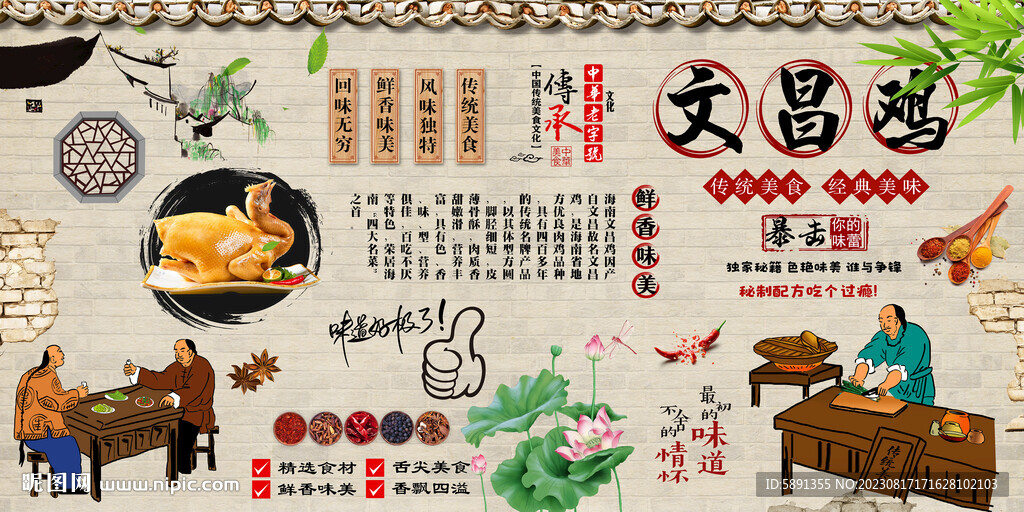 文昌鸡
传统美食 经典美味
暴击
你的
味蕾
独家秘籍 色艳味美 谁与争锋
秘制配方吃个过瘾!
中华老字號
文化
傳承
【中国传统美食文化】
中华
美食
传统美食
风味独特
鲜香味美
回味无穷
鲜香味美
海南文昌鸡因产
自文昌故名文昌
鸡,是海南省地
方优良肉鸡品种
,具有四百多年
的传统名牌产品
,以其体型方圆
,脚胫细短,皮
薄骨酥,肉质香
甜嫩滑,营养丰
富,具有色、香
、味、型、营养
俱佳,百吃不厌
等特色,荣居海
南"四大名菜"
之首。
味道好极了!
最初的味道
不舍的情怀
精选食材
舌尖美食
鲜香味美
香飘四溢
昵图网 www.nipic.com
ID:5891355 NO:20230817171628102103